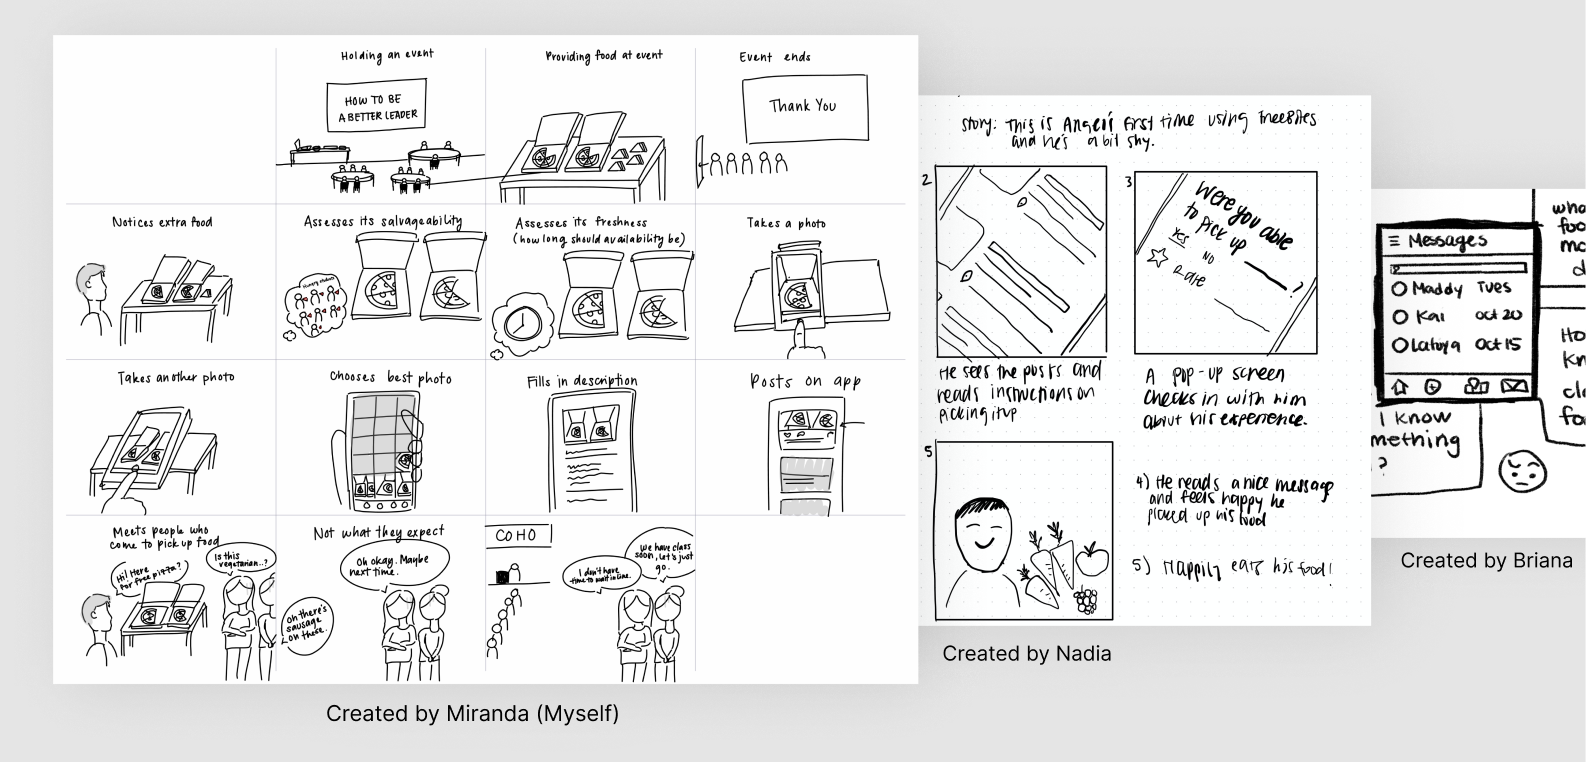 Holding an event
HOW TO BE
A BETTER LEADER
Providing food at event
Event ends
Thank You
Notices extra food
Assesses its salvageability
Hungry students
Assesses its freshness
(how long should availability be)
Takes a photo
Takes another photo
Chooses best photo
Fills in description
Posts on app
Meets people who
come to pick up food
Hi! Here
for free pizza?
Is this
vegetarian..?
Not what they expect
Oh okay. Maybe
next time.
Oh there's
sausage
on these.
COHO
I don't have
time to wait in line.
We have class
soon, let's just
go.
Created by Miranda (Myself)
story: This is Angel's first time using FreeBites
and he's a bit shy.
2
He sees the posts and
reads instructions on
picking it up
3
Were you able
to pick up
?
Yes
NO
Rate
A pop-up screen
checks in with him
about his experience.
5
4) He reads a nice message
and feels happy he
picked up his food
5) Happily eats his food!
Created by Nadia
Messages
Maddy Tues
Kai Oct 20
Latoya Oct 15
who
foo
mo
d
Ho
Kn
clo
fo
I know
mething
?
Created by Briana